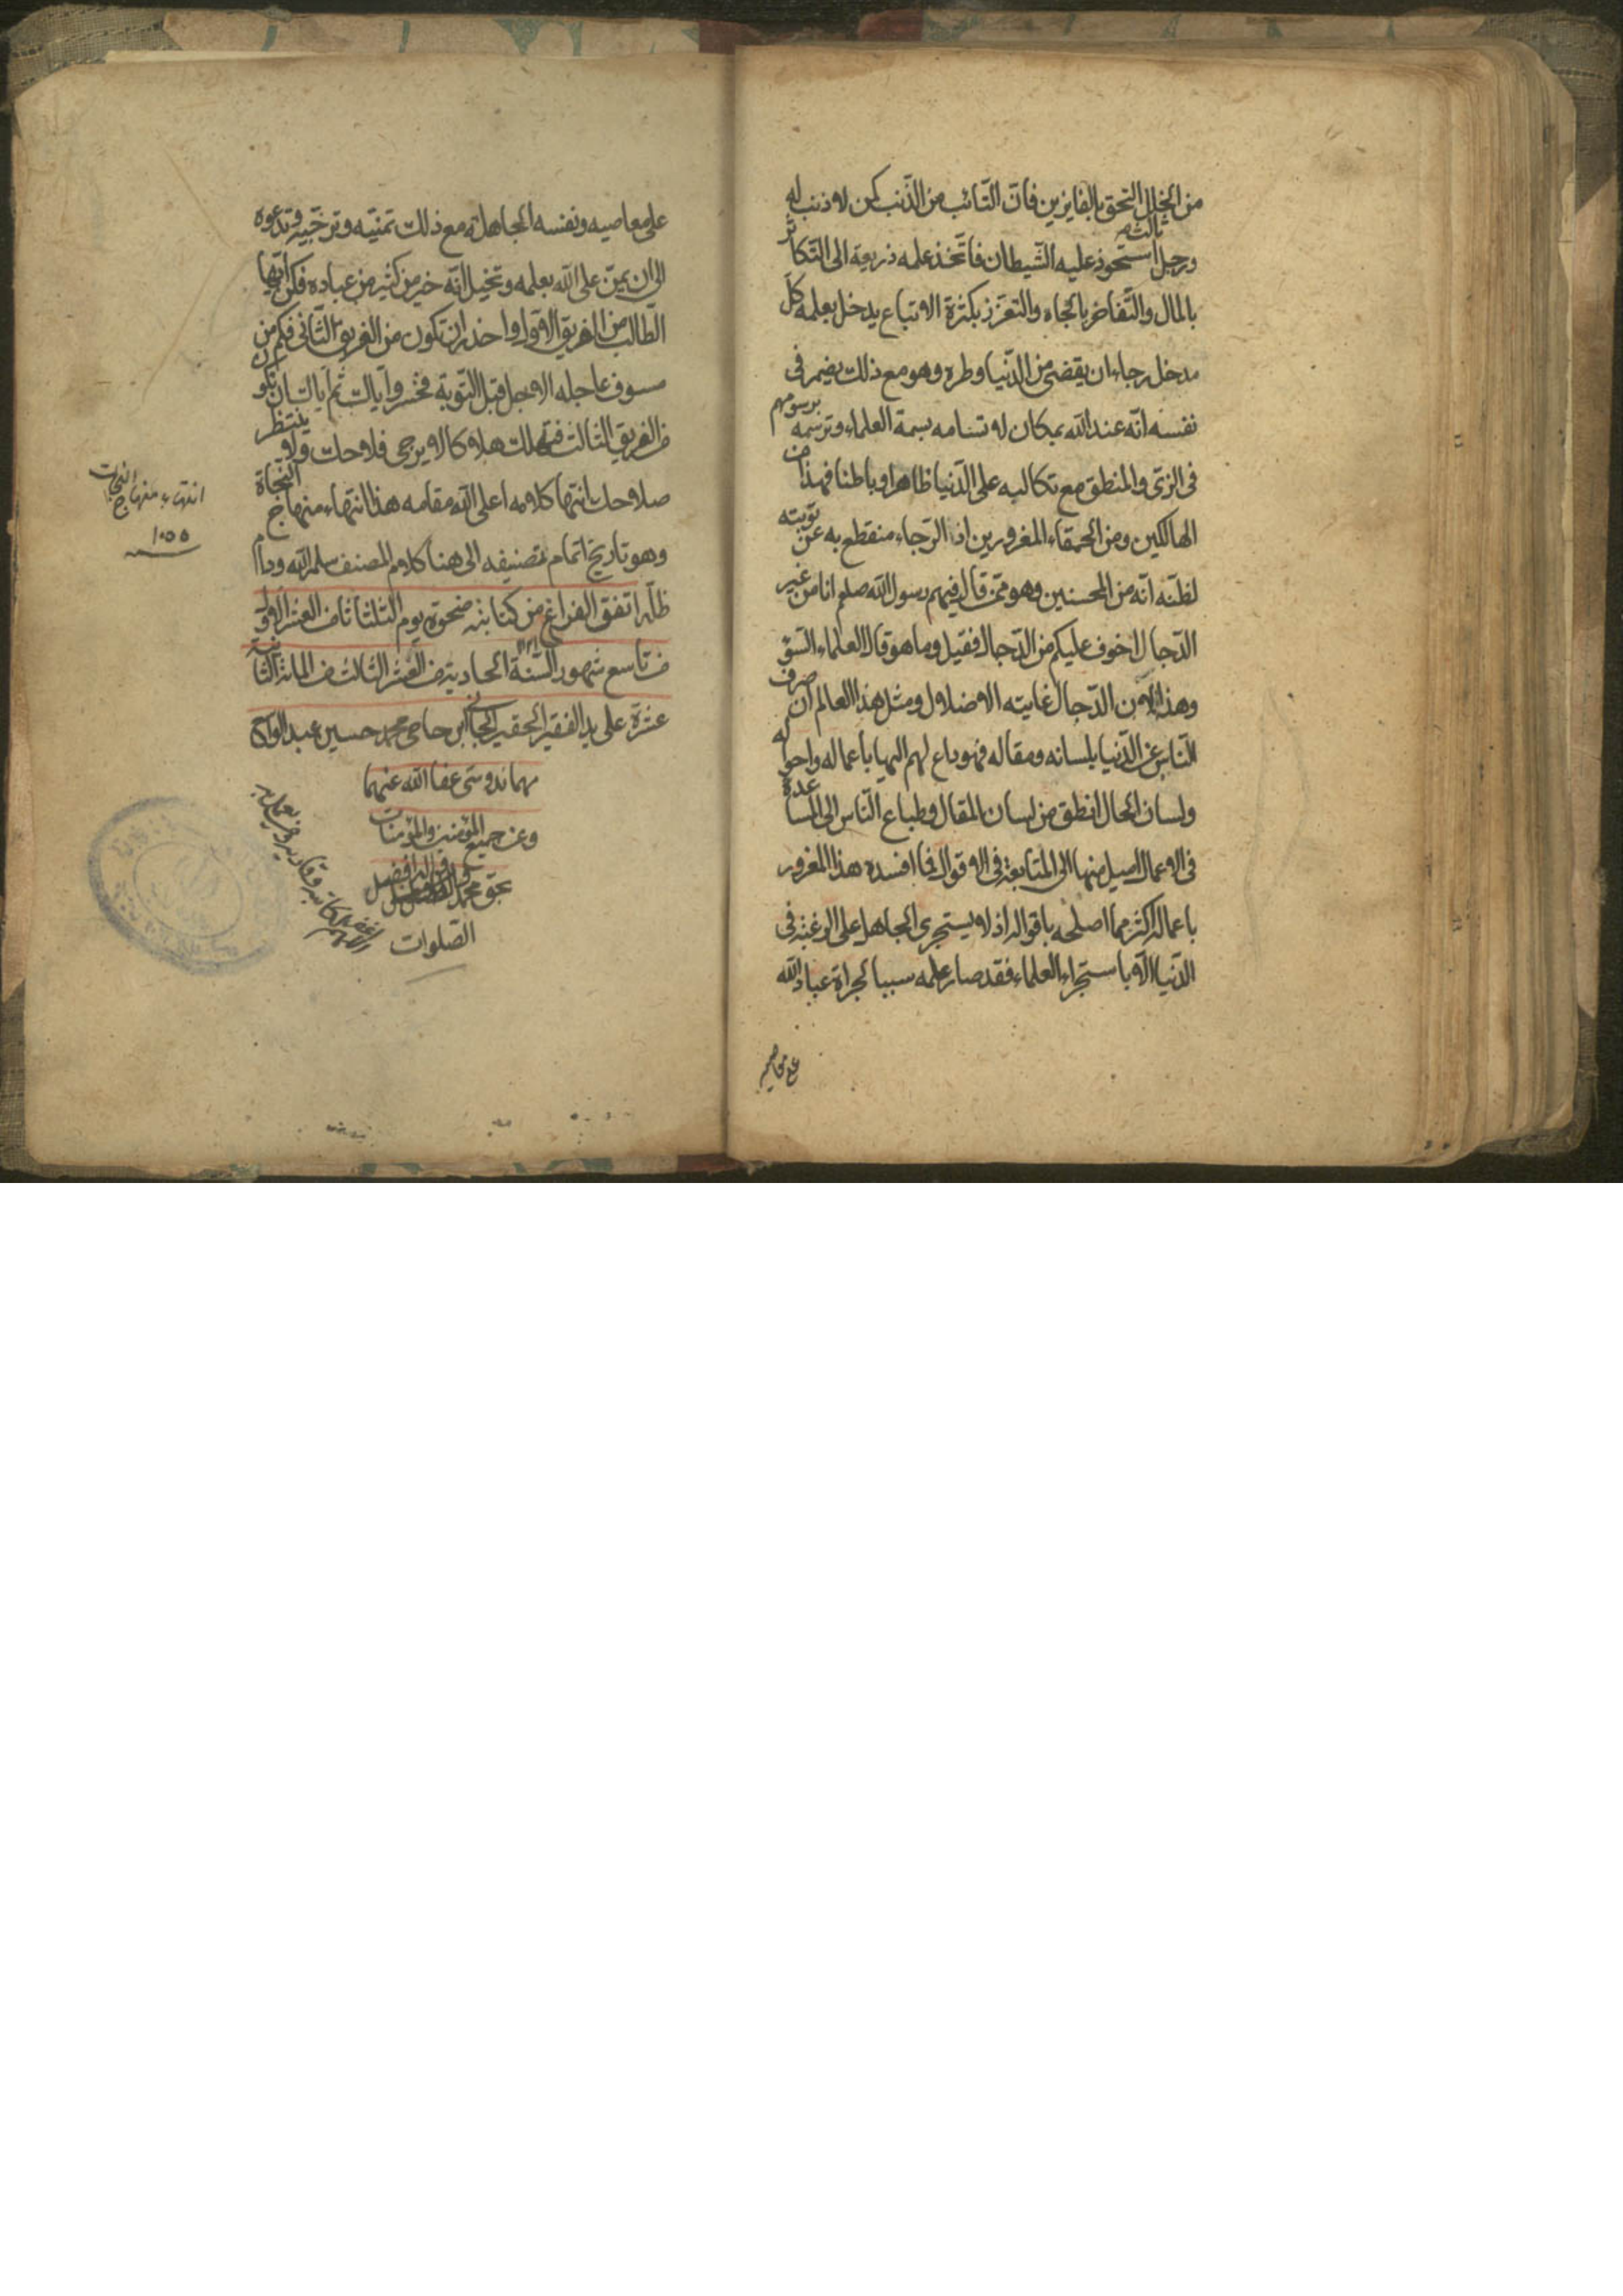 من الخلل التحق بالفايزين فانّ التّائب من الذّنب كمن لا ذنب له
ثالثهم
ورجل استحوذ عليه الشّيطان فاتّخذ علمه ذريعة الى التّكاثر
بالمال والتّفاخر بالجاه والتعزّز بكثرة الاتباع يدخل بعلمه كلّ
مدخل رجاء ان يقضى من الدّنيا وطره وهو مع ذلك يضمر فى
نفسه انّه عند الله بمكان لاتسامه بسمة العلماء وترسّمه برسومهم
فى الزىّ والمنطق مع تكالبه على الدّنيا ظاهرا وباطنا فهذا من
الهالكين ومن الحمقاء المغرورين اذ الرّجاء منقطع به عن توبته
لظنّه انّه من المحسنين وهو ممّن قال فيهم رسول الله صلعم انا من غير
الدّجال اخوف عليكم من الدّجال فقيل وما هو قال العلماء السّوء
وهذا لانّ الدّجال غايته الاضلال ومثل هذا العالم ان صرف
النّاس عن الدّنيا بلسانه ومقاله فهو داع لهم اليها باعماله واحواله
ولسان الحال انطق من لسان المقال وطباع النّاس الى المساعدة
فى الاعمال اميل منها الى المتابعة فى الاقوال فما افسده هذا المغرور
باعماله اكثر مما اصلحه باقواله اذ لا يستجرى الجاهل على الرغبة فى
الدّنيا الّا باستجراء العلماء فقد صار علمه سببا لجراة عباد الله
على معاصيه
على معاصيه ونفسه الجاهلة مع ذلك تمنّيه وترجّيه وتدعوه
الى ان يمنّ على الله بعلمه وتخيل انّه خير من كثير من عباده فكن ايّها
الطّالب من الفريق الاوّل واحذر ان تكون من الفريق الثّانى فكم من
مسوف عاجله الاجل قبل التّوبة فخسر وايّاك ثمّ ايّاك ان تكون
من الفريق الثالث فتهلك هلاكا لا يرجى فلاحك ولا ينتظر
صلاحك انتهى كلامه اعلى الله مقامه هذا انتهاء منهاج النجاة
وهو تاريخ اتمام تصنيفه الى هنا كلام المصنف سلمه الله ودام
ظلّه اتفق الفراغ من كتابته ضحوة يوم الثلثا ثانى العشر الاول
من تاسع شهور السّنة الحادية من العشر الثالث من المائة الثانية
عشرة على يد الفقير الحقير الجانى ابن حاجى محمد حسين عبد الواحد
عفا الله عنهما
وعن جميع المؤمنين والمؤمنات
بحق محمد
الصّلوات
انتهاء منهاج النجات
١٠٥٥